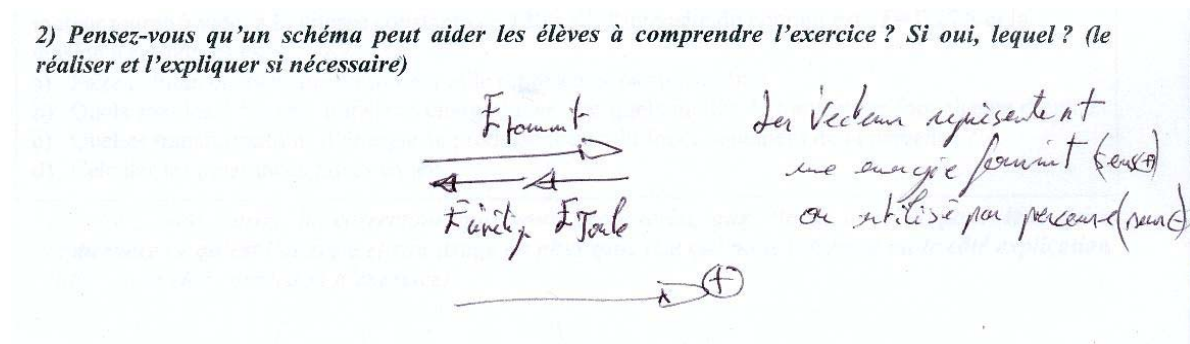 2) Pensez-vous qu'un schéma peut aider les élèves à comprendre l'exercice ? Si oui, lequel ? (le
réaliser et l'expliquer si nécessaire)
E fournit
Les Vecteurs représentent
une énergie fournit (sens +)
E cinétiq E Joule
ou utilisé par (sens -)
+